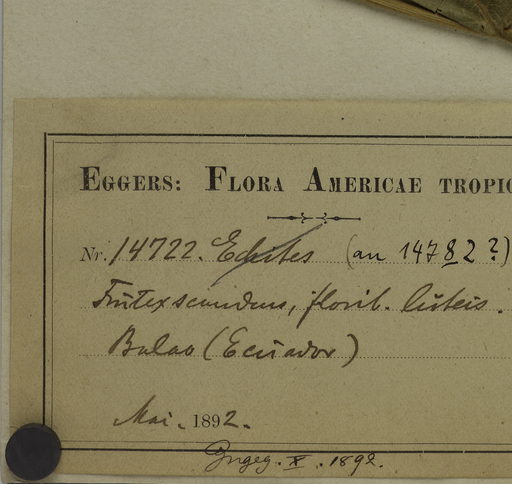 EGGERS: FLORA AMERICAE TROPIC
Nr. 14722. Echites (an 14782?)
Frutex scandens, florib. luteis.
Balao (Ecuador)
Mai. 1892.
Gngeg. X. 1892.